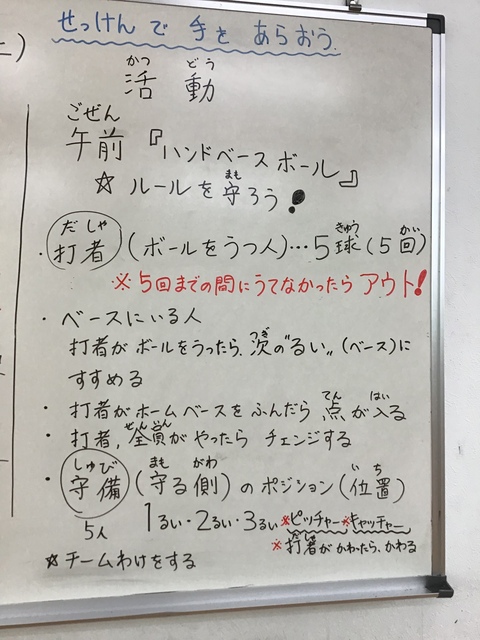 せっけんで手をあらおう。
かつ どう
活 動
ごぜん
午前 『ハンドベースボール』
まも
☆ ルールを守ろう!
だしゃ きゅう かい
・打者 (ボールをうつ人)…5球(5回)
※5回までの間にうてなかったらアウト!
・ベースにいる人
つぎ
打者がボールをうったら、次の"るい"(ベース)に
すすめる
てん はい
・打者がホームベースをふんだら 点が入る
ぜんいん
・打者、全員がやったら チェンジする
しゅび まも がわ いち
・守備 (守る 側) のポジション(位置)
5人 1るい・2るい・3るい ※ピッチャー※キャッチャー
だしゃ
※打者がかわったら、かわる
☆チームわけをする